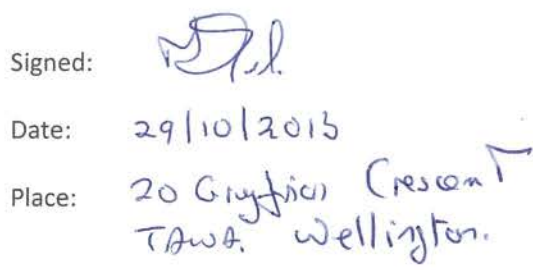 Signed:
Date: 29/10/2013
Place: 20 Greyfriars Crescent
TAWA. Wellington.